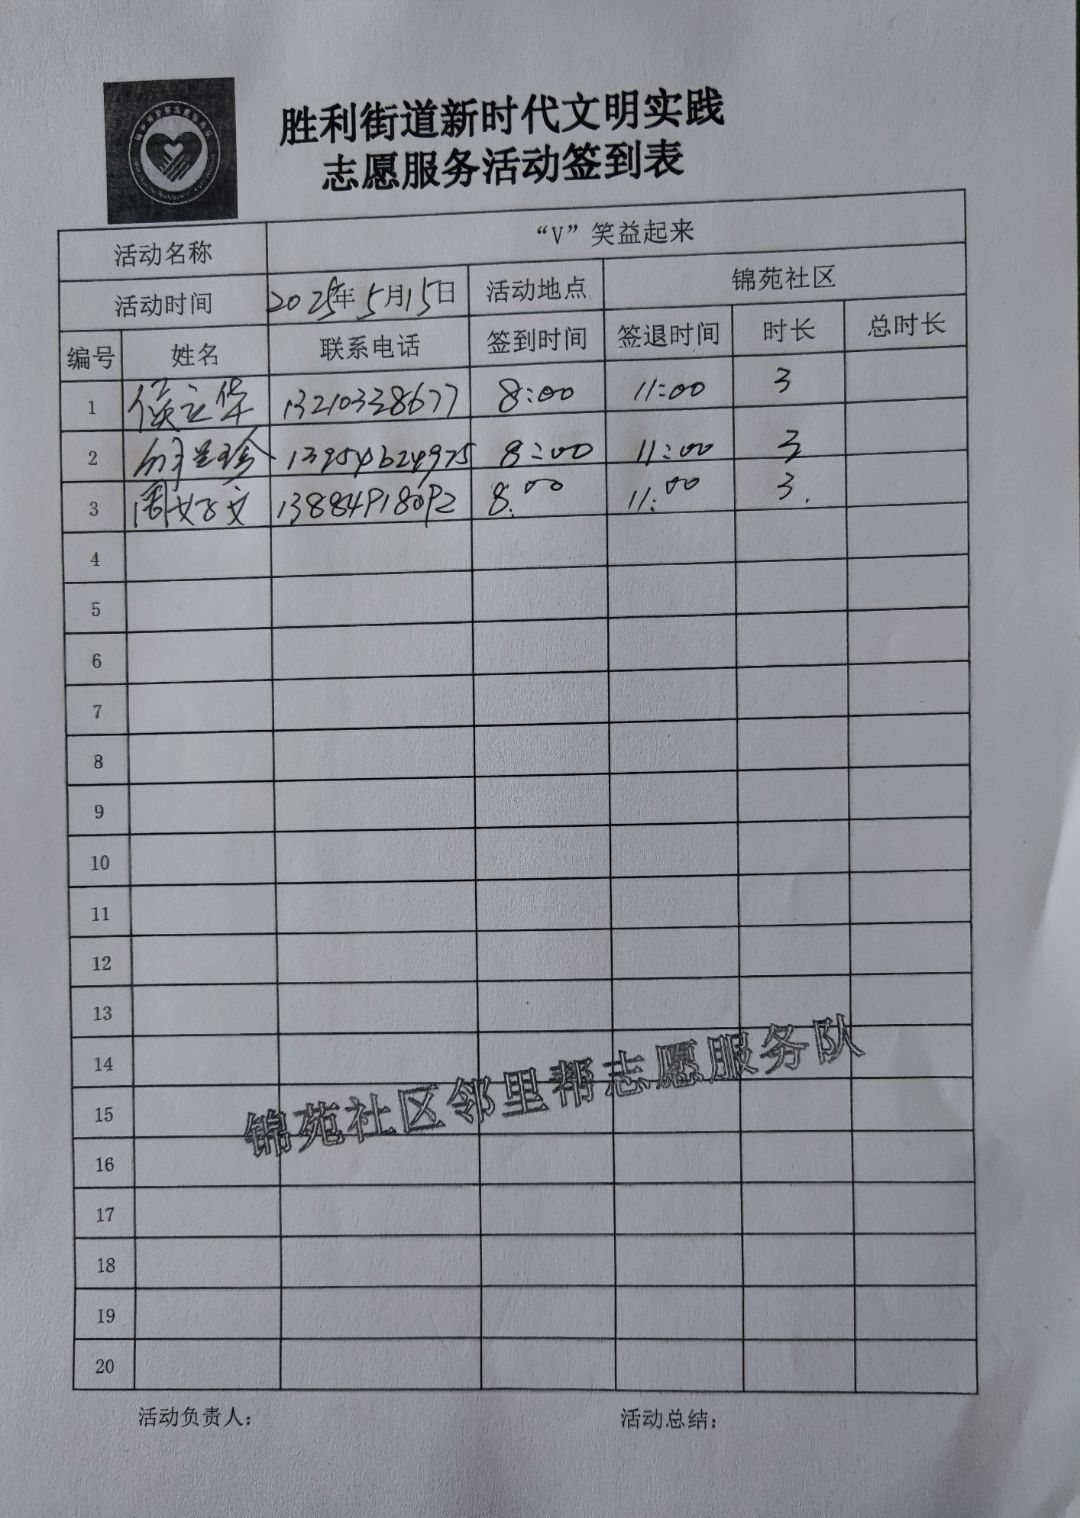 胜利街道新时代文明实践
志愿服务活动签到表
活动名称 “V”笑益起来
活动时间 2025年5月15日 活动地点 锦苑社区
编号 姓名 联系电话 签到时间 签退时间 时长 总时长
1 侯立华 13210338677 8:00 11:00 3
2 13954624975 8:00 11:00 3
3 周好文 13884918092 8:00 11:00 3.
4
5
6
7
8
9
10
11
12
13
14
15
16
17
18
19
20
锦苑社区邻里帮志愿服务队
活动负责人： 活动总结：